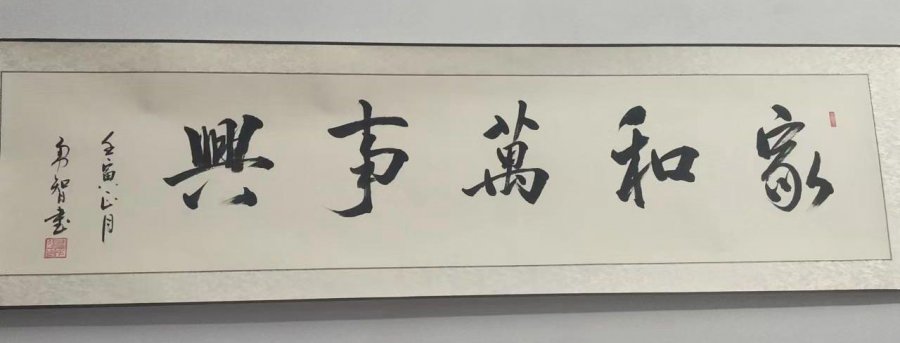 家和萬事興
壬寅正月
勇智書